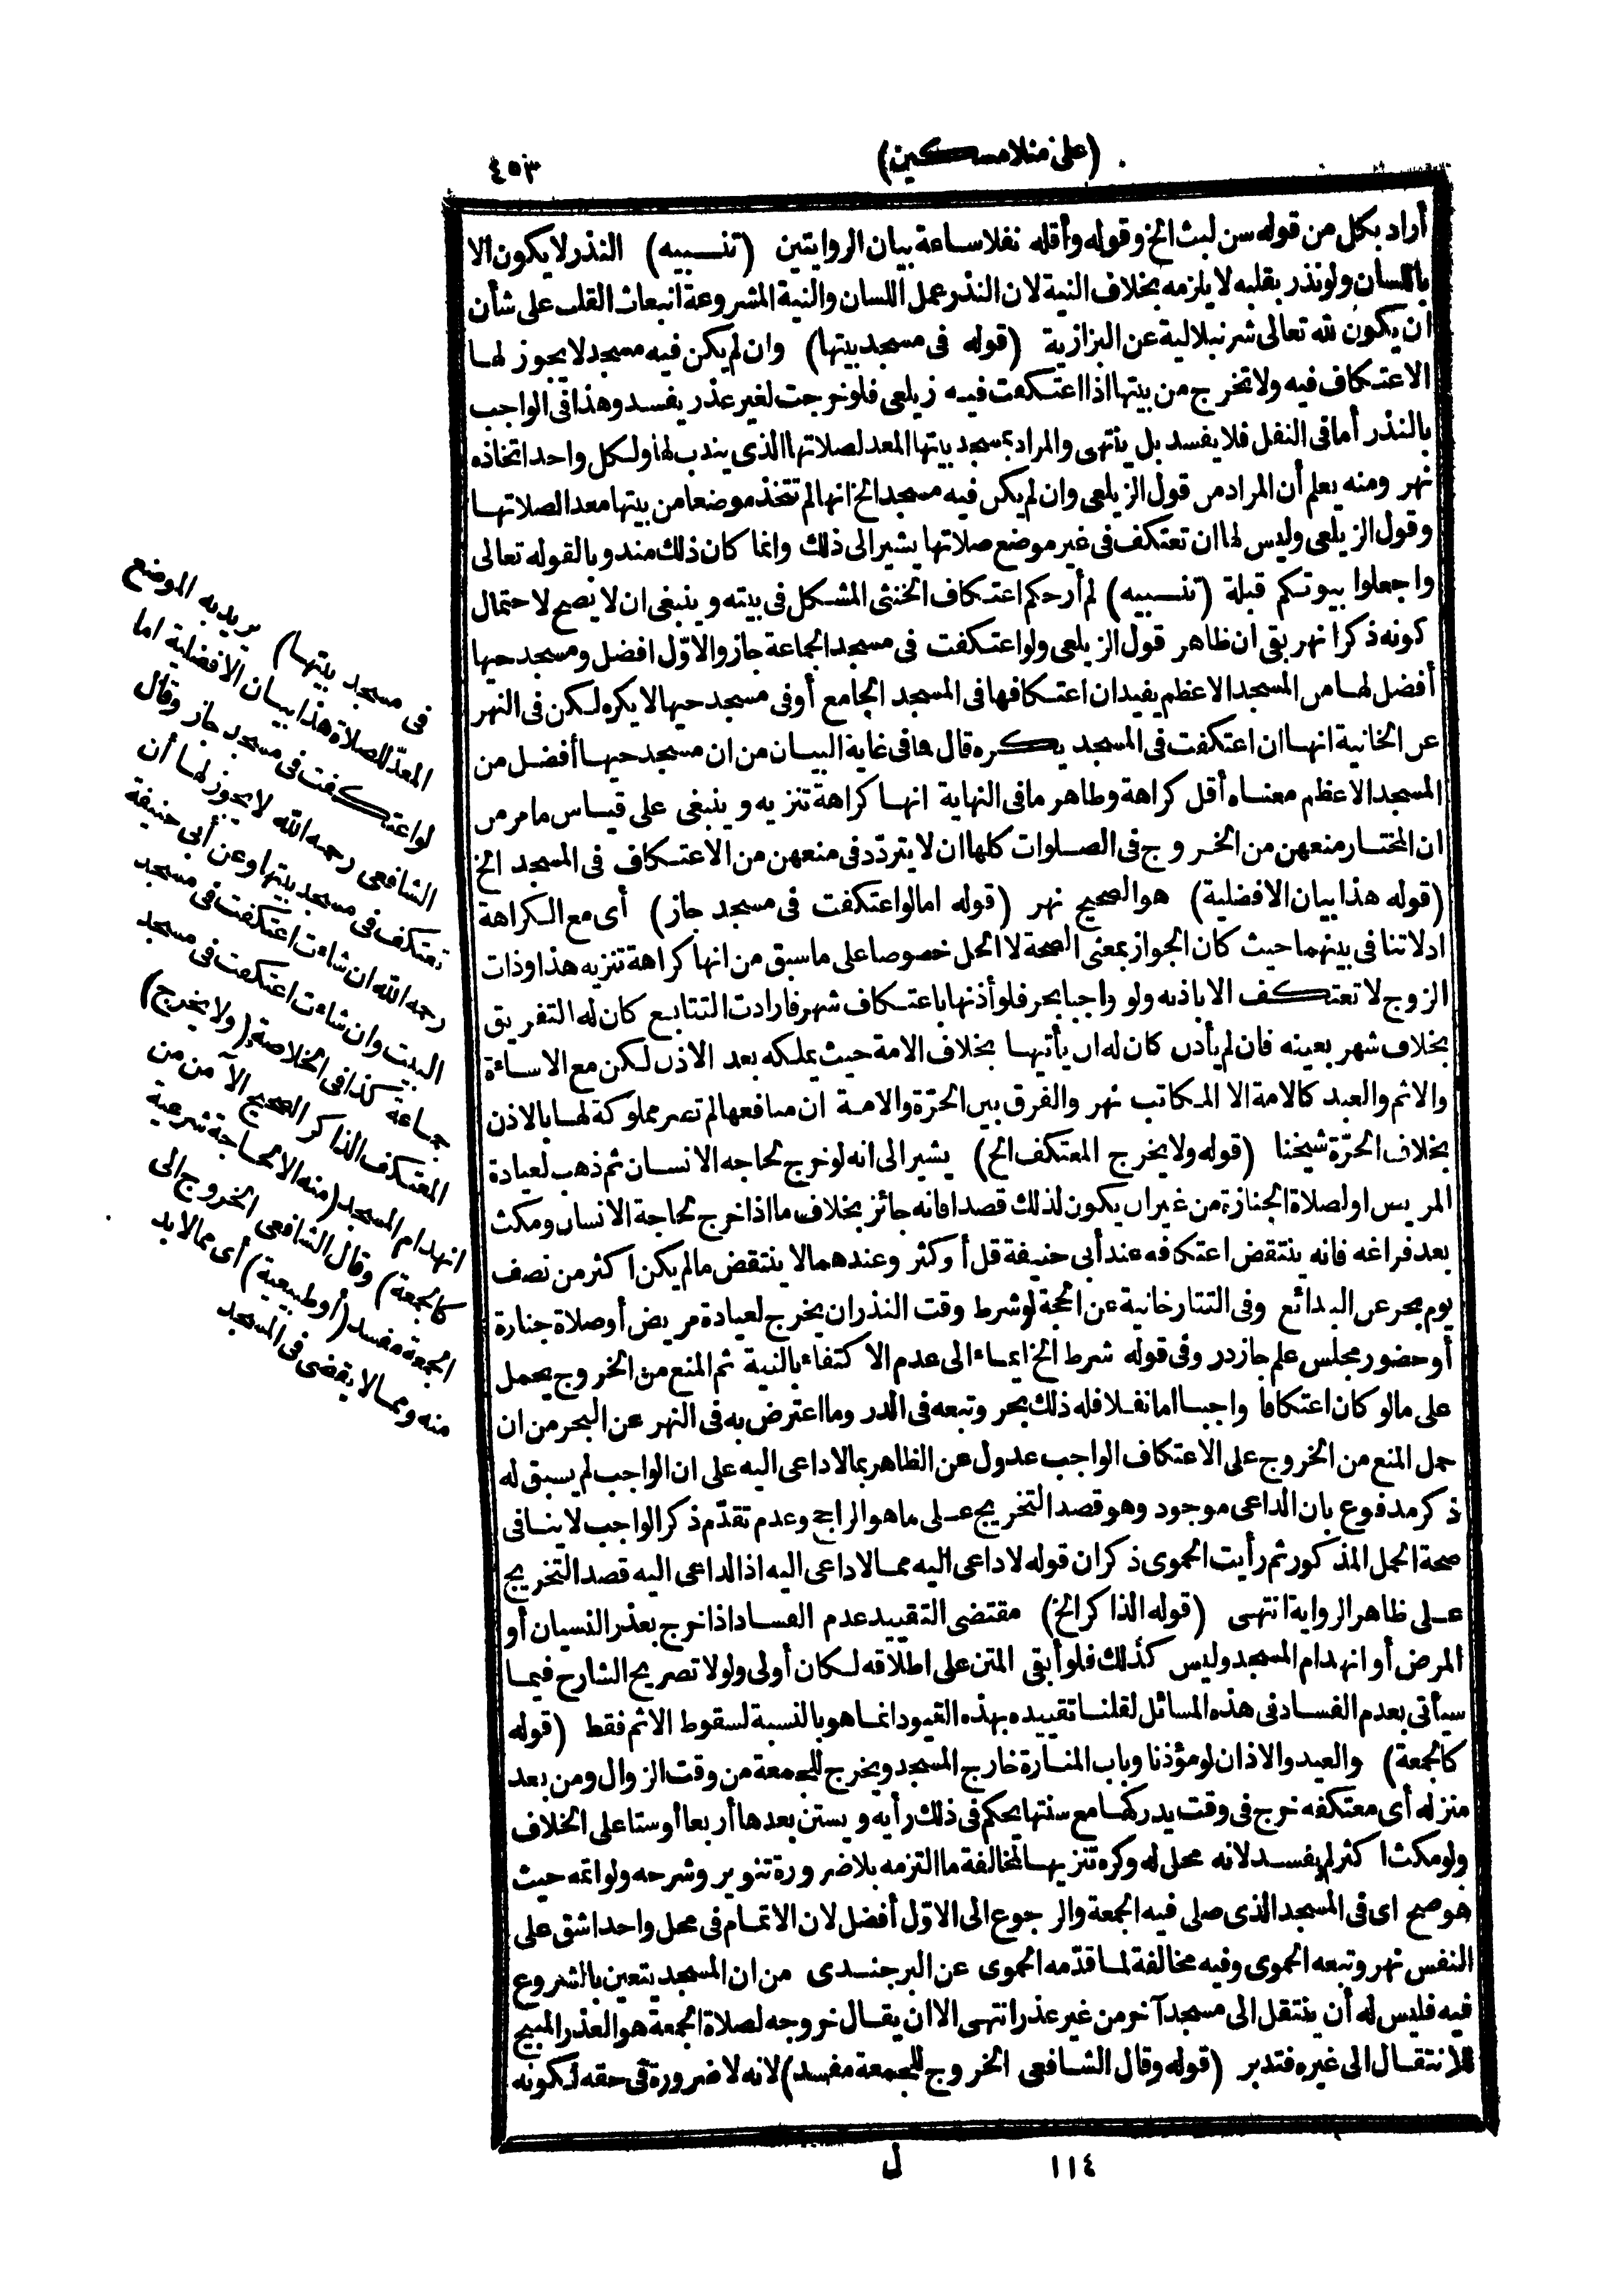 (على منلا مسكين)
٤٥٣
أراد بكل من قوله سن لبث الخ وقوله وأقله نفلا ساعة بيان الروايتين (تنبيه) النذر لا يكون الا
باللسان ولو نذر بقلبه لا يلزمه بخلاف النية لان النذر عمل اللسان والنية المشروعة انبعاث القلب على شأن
ان يكون لله تعالى شرنبلالية عن البزازية (قوله فى مسجد بيتها) وان لم يكن فيه مسجد لا يجوز لها
الاعتكاف فيه ولا تخرج من بيتها اذا اعتكفت فيه زيلعى فلو خرجت لغير عذر يفسد وهذا فى الواجب
بالنذر أما فى النفل فلا يفسد بل ينتهى والمراد بمسجد بيتها المعد لصلاتها الذى يندب لها ولكل واحد اتخاذه
نهر ومنه يعلم أن المراد من قول الزيلعى وان لم يكن فيه مسجد الخ انها لم تتخذ موضعا من بيتها معدا لصلاتها
وقول الزيلعى وليس لها ان تعتكف فى غير موضع صلاتها يشير الى ذلك وانما كان ذلك مندوبا لقوله تعالى
واجعلوا بيوتكم قبلة (تنبيه) لم أر حكم اعتكاف الخنثى المشكل فى بيته وينبغى ان لا يصح لاحتمال
كونه ذكرا نهر بقى ان ظاهر قول الزيلعى ولو اعتكفت فى مسجد الجماعة جاز والاوّل افضل ومسجد حيها
أفضل لها من المسجد الاعظم يفيد ان اعتكافها فى المسجد الجامع أو فى مسجد حيها لا يكره لكن فى النهر
عن الخانية انها ان اعتكفت فى المسجد يكره قال فما فى غاية البيان من ان مسجد حيها أفضل من
المسجد الاعظم معناه أقل كراهة وظاهر ما فى النهاية انها كراهة تنزيه وينبغى على قياس ما مر من
ان المختار منعهن من الخروج فى الصلوات كلها ان لا يتردّد فى منعهن من الاعتكاف فى المسجد الخ
(قوله هذا بيان الافضلية) هو الصحيح نهر (قوله اما لو اعتكفت فى مسجد جاز) أى مع الكراهة
اذ لا تنافى بينهما حيث كان الجواز بمعنى الصحة لا الحل خصوصا على ما سبق من انها كراهة تنزيه هذا وذات
الزوج لا تعتكف الا باذنه ولو واجبا بحر فلو أذنها باعتكاف شهر فارادت التتابع كان له التفريق
بخلاف شهر بعينه فان لم يأذن كان له ان يأتيها بخلاف الامة حيث يملكه بعد الاذن لكن مع الاساءة
والاثم والعبد كالامة الا المكاتب نهر والفرق بين الحرّة والامة ان منافعها لم تصر مملوكة لها بالاذن
بخلاف الحرّة شيخنا (قوله ولا يخرج المعتكف الخ) يشير الى انه لو خرج لحاجة الانسان ثم ذهب لعيادة
المريض او لصلاة الجنازة من غير ان يكون لذلك قصدا فانه جائز بخلاف ما اذا خرج لحاجة الانسان ومكث
بعد فراغه فانه ينتقض اعتكافه عند أبى حنيفة قل أو كثر وعندهما لا ينتقض ما لم يكن اكثر من نصف
يوم بحر عن البدائع وفى التتارخانية عن الحجة لو شرط وقت النذر ان يخرج لعيادة مريض أو صلاة جنازة
أو حضور مجلس علم جاز در وفى قوله شرط الخ ايماء الى عدم الاكتفاء بالنية ثم المنع من الخروج يحمل
على ما لو كان اعتكافا واجبا اما نفلا فله ذلك بحر وتبعه فى الدر وما اعترض به فى النهر عن البحر من ان
حمل المنع من الخروج على الاعتكاف الواجب عدول عن الظاهر بما لا داعى اليه على ان الواجب لم يسبق له
ذكر مدفوع بان الداعى موجود وهو قصد التخريج على ما هو الراجح وعدم تقدّم ذكر الواجب لا ينافى
صحة الحمل المذكور ثم رأيت الحموى ذكر ان قوله لا داعى اليه مما لا داعى اليه اذ الداعى اليه قصد التخريج
على ظاهر الرواية انتهى (قوله الذاكر الخ) مقتضى التقييد عدم الفساد اذا خرج بعذر النسيان أو
المرض أو انهدام المسجد وليس كذلك فلو أبقى المتن على اطلاقه لكان أولى ولولا تصريح الشارح فيما
سيأتى بعدم الفساد فى هذه المسائل لقلنا تقييده بهذه القيود انما هو بالنسبة لسقوط الاثم فقط (قوله
كالجمعة) والعيد والاذان لو مؤذنا وباب المنارة خارج المسجد ويخرج للجمعة من وقت الزوال ومن بعد
منزله أى معتكفه خرج فى وقت يدركها مع سنتها يحكم فى ذلك رأيه ويستن بعدها أربعا أو ستا على الخلاف
ولو مكث اكثر لم يفسد لانه محل له وكره تنزيها لمخالفة ما التزمه بلا ضرورة تنوير وشرحه ولو اتمه حيث
هو صح اى فى المسجد الذى صلى فيه الجمعة والرجوع الى الاوّل أفضل لان الاتمام فى محل واحد اشق على
النفس نهر وتبعه الحموى وفيه مخالفة لما قدّمه الحموى عن البرجندى من ان المسجد يتعين بالشروع
فيه فليس له أن ينتقل الى مسجد آخر من غير عذر انتهى الا ان يقال خروجه لصلاة الجمعة هو العذر المبيح
للانتقال الى غيره فتدبر (قوله وقال الشافعى الخروج للجمعة مفسد) لانه لا ضرورة فى حقه لكونه
فى مسجد بيتها) يريد به الموضع
المعدّ للصلاة هذا بيان الافضلية اما
لو اعتكفت فى مسجد جاز وقال
الشافعى رحمه الله لا يجوز لها أن
تعتكف فى مسجد بيتها وعن أبى حنيفة
رحمه الله ان شاءت اعتكفت فى مسجد
البيت وان شاءت اعتكفت فى مسجد
جماعة كذا فى الخلاصة (ولا يخرج)
المعتكف الذاكر الصحيح الآمن من
انهدام المسجد (منه الا لحاجة شرعية
كالجمعة) وقال الشافعى الخروج الى
الجمعة مفسد (أو طبيعية) أى مما لا بد
منه ومما لا يقضى فى المسجد
١١٤
ل